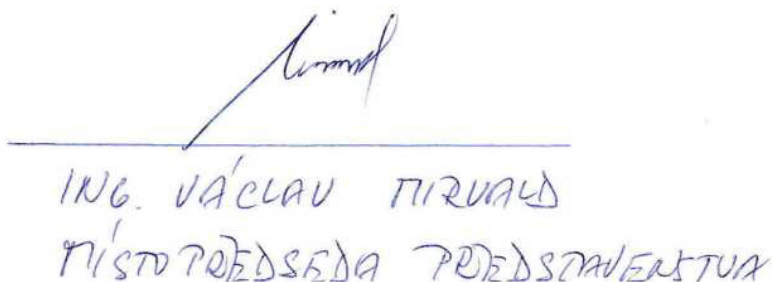 ING. VÁCLAV MIRVALD
MÍSTOPŘEDSEDA PŘEDSTAVENSTVA